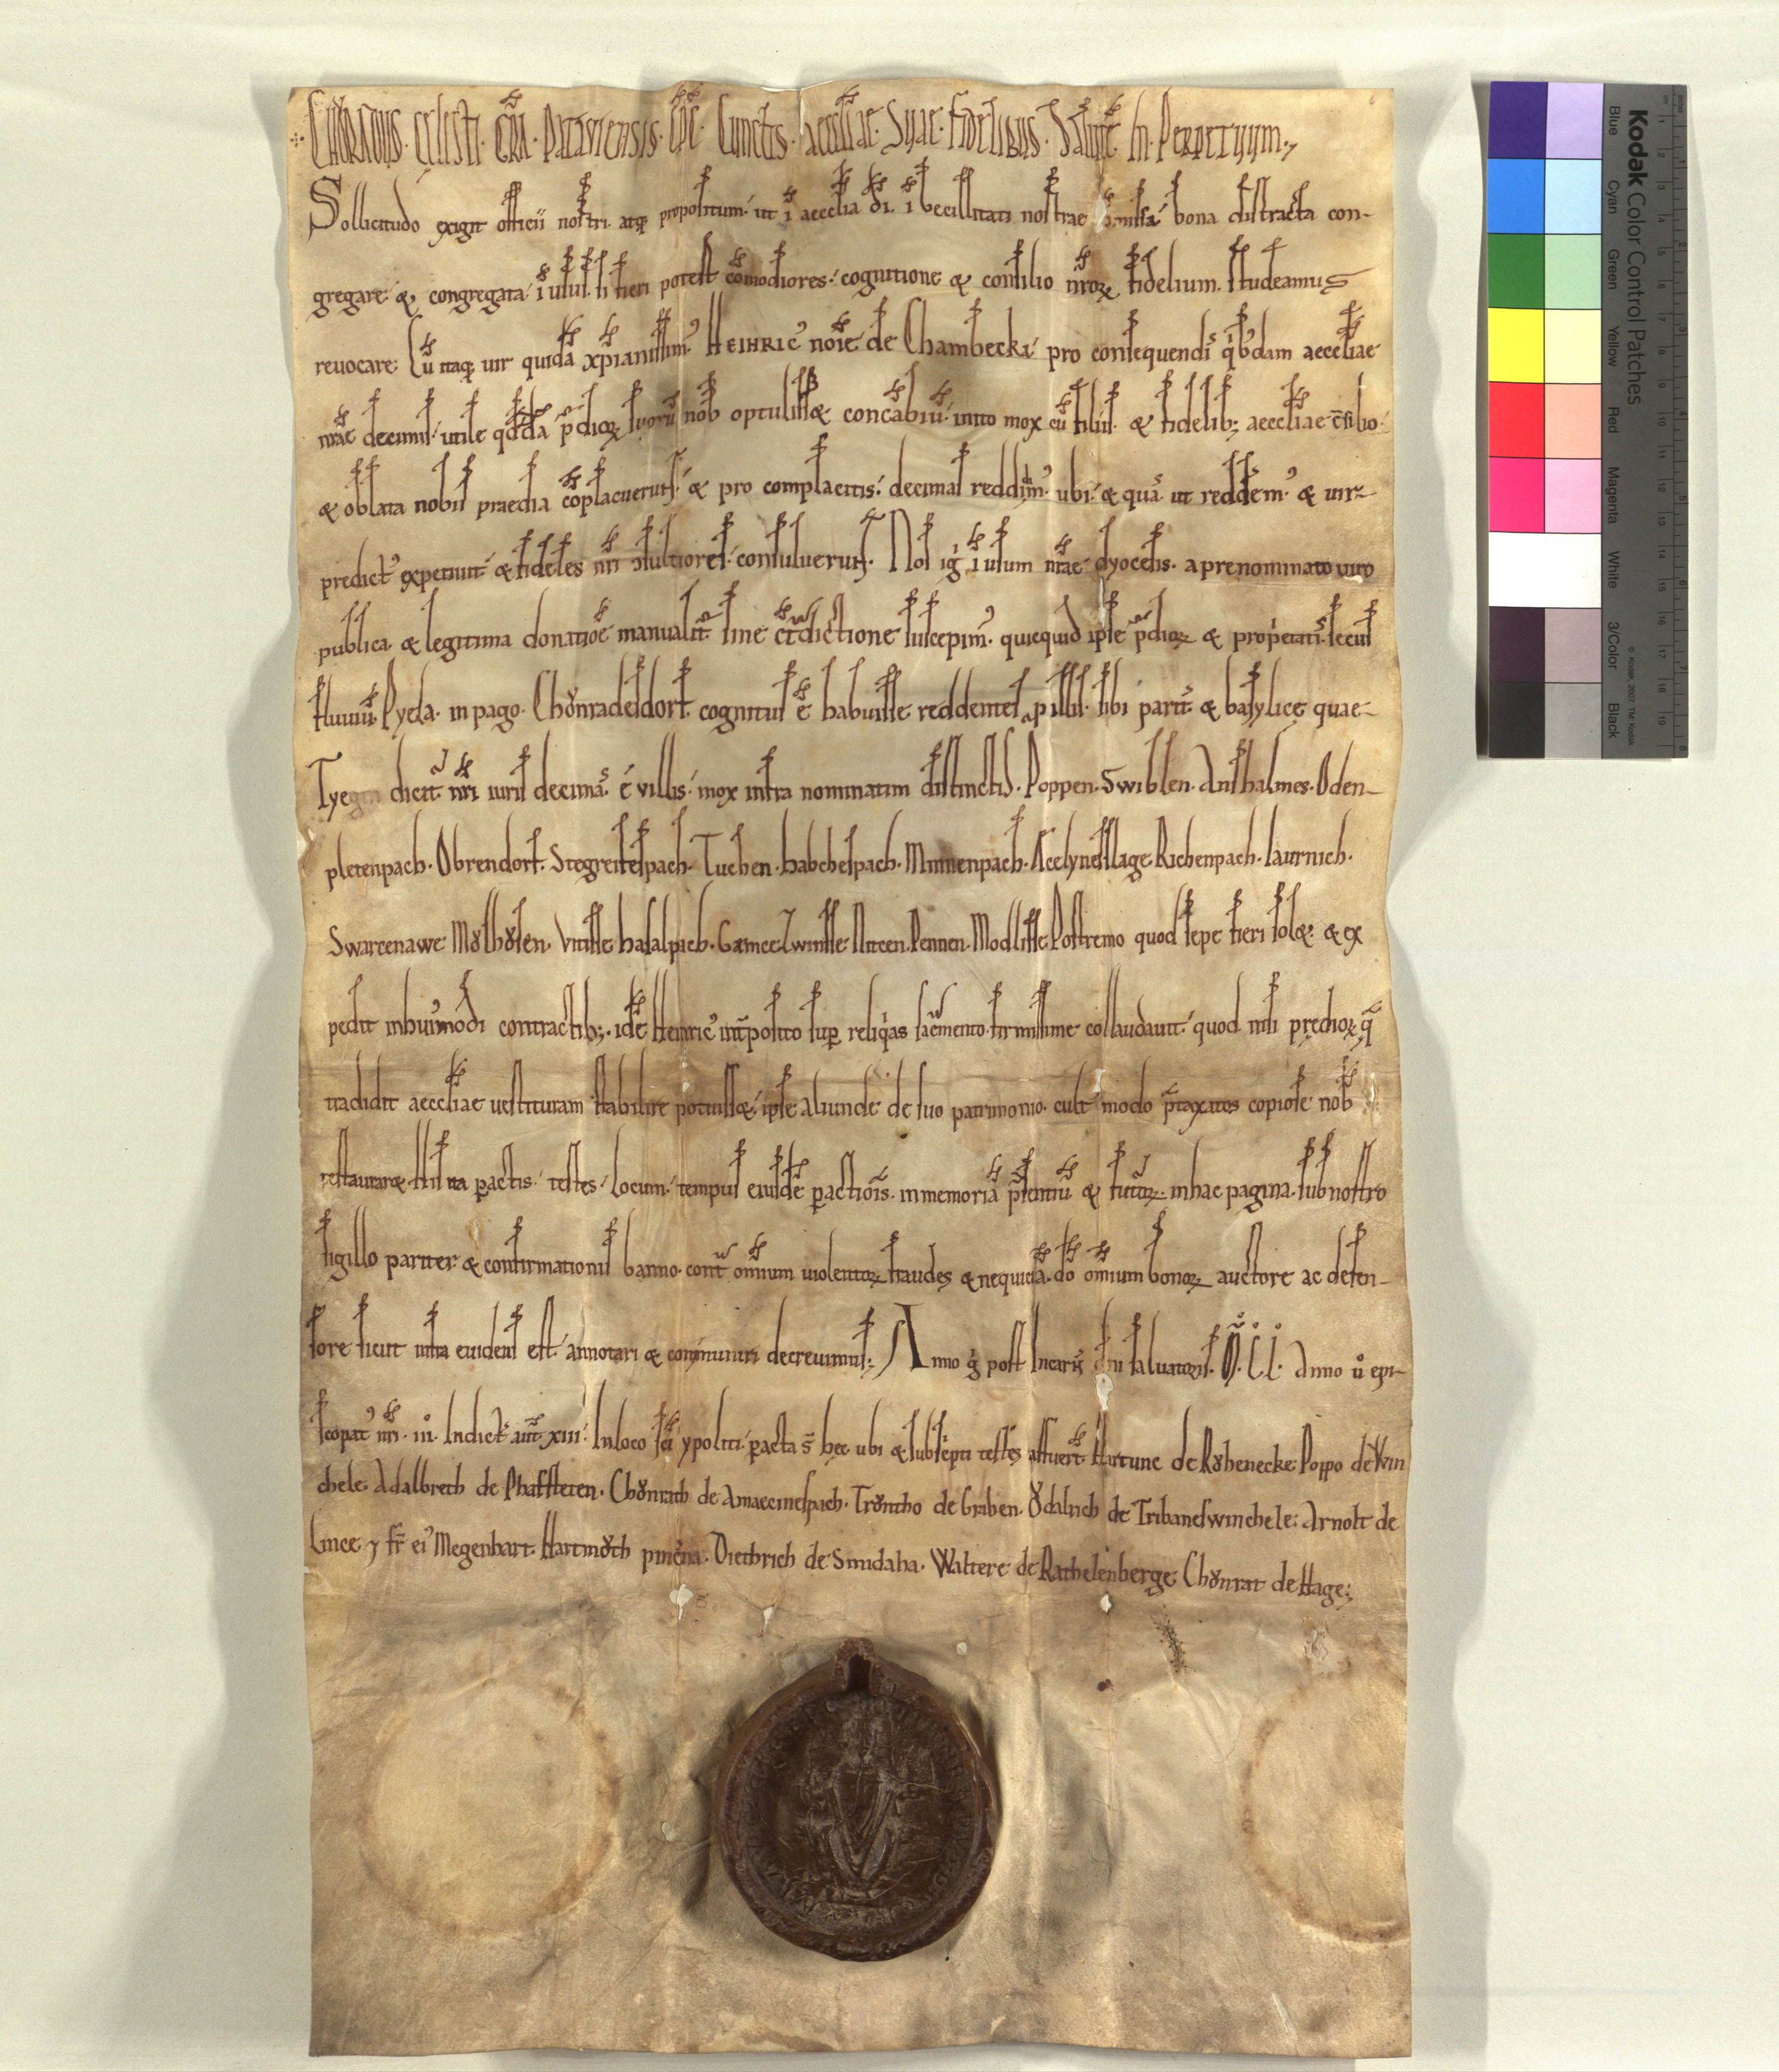 CHŎNRADUS. CELESTI. GRA. PATAVIENSIS. EPC. CUNCTIS. AECCLIAE. SUAE. FIDELIBUS. SALUTE. IN. PERPETUUM.
Sollicitudo exigit officii nostri. atq; propositum. ut ī aecclia dī. ībecillitati nostrae bona distracta con-
gregare. & congregata. ī usus. si fieri potest cōmodiores. cognitione & consilio nrōꝝ fidelium. studeamus
reuocare. Cū itaq; uir quidā xp̄ianissim᾽ HEINRIC᾽ noīe de Chambeckā pro consequendis q'b᾽dam aeccliae
nr̄ae decimis. utile qd̄dā p̄dioꝝ suorū nob optulisset concābiū. inito mox cū filiis. & fidelib; aeccliae c̄silio.
& oblata nobis praedia cōplacuerunt. & pro complacitis. decimas reddim᾽ ubi. & quā. ut reddem᾽ & uir
predict᾽ expetiuit. & fideles nr̄i ɔsultiores. consuluerunt. Nos ig' ī usum nr̄ae dyocesis. a prenominato uiro
publica. & legitima donatiōe manualit᾽ sine ct̄dictione suscepim᾽. quicquid ipse p̄dioꝝ & prop'etatis. secus
fluuiū. Pyela. in pago. Chŏnradesdorf. cognitus ē habuisse reddentes p illis. sibi parit᾽ & basylicę quae-
Tyegin dicit᾽ nr̄i iuris decimas. ī villis. mox infra nominatim distinctis. Poppen. Swiblen. Anshalmes. Oden-
pletenpach. Obrendorf. Stegreifespach. Tuchen. habchespach. Minnenpach. Acelynesslage. Richenpach. laurnich.
Swarcenawe. Mŏlhŏsen. Vitisse. haslapach. Gæmce. Zwinsse. Nicen. Pennen. Modlisse. Postremo quod sepe fieri solet. & ex
pedit inhui᾽modi contractib;. idē Heinric᾽ int̄posito sup reliq'as sacr̄mento. firmissime collaudauit. quod nisi prędioꝝ. q̄
tradidit aeccliae uestituram stabilire potuisset. ipse aliunde de suo patrimonio. cult' modo p̄taxatos copiose nob
restauraret. His ita pactis. testes. locum. tempus eiusdē pactiōis. in memoriā p̄sentiū & futuroꝝ. in hac pagina. sub nostro
sigillo pariter. & confirmationis banno. cont̄ omium uiolentoꝝ fraudes & nequiciā. dō omium bonoꝝ auctore ac defen-
sore sicut infra euidens est. annotari & communiri decreuimus; Anno g' post Incarn̄ dn̄i saluatoris. M. C. L. Anno u᾽ epi-
scopat᾽ nr̄i. iii. Indict᾽ aut᾽. xiii. In loco sc̄i ypoliti. pacta s̄ hec. ubi & subsc'pti testes affuert̄. Hartunc de Rŏhenecke. Poppo de Win
chele. Adalbreth de Phaffsteten. Chŏnrath de Amaecinespach. Trŏntho de Graben. Ŏdalrich de Tribaneswinchele. Arnolt de
Lince ⁊ fr̄ ei᾽ Megenhart. Hartmŏth pincerna. Diethrich de Smidaha. Waltere de Rathelenberge. Chŏnrat de Hage;
Kodak Color Control Patches
Blue Cyan Green Yellow Red Magenta White 3/Color Black
© Kodak, 2007 TM: Kodak